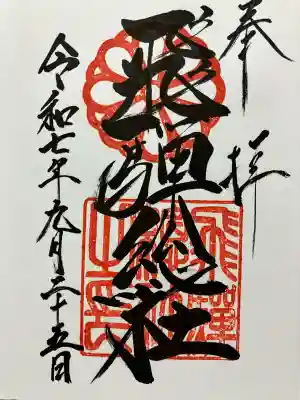 奉拝
飛騨総社
令和七年九月二十五日